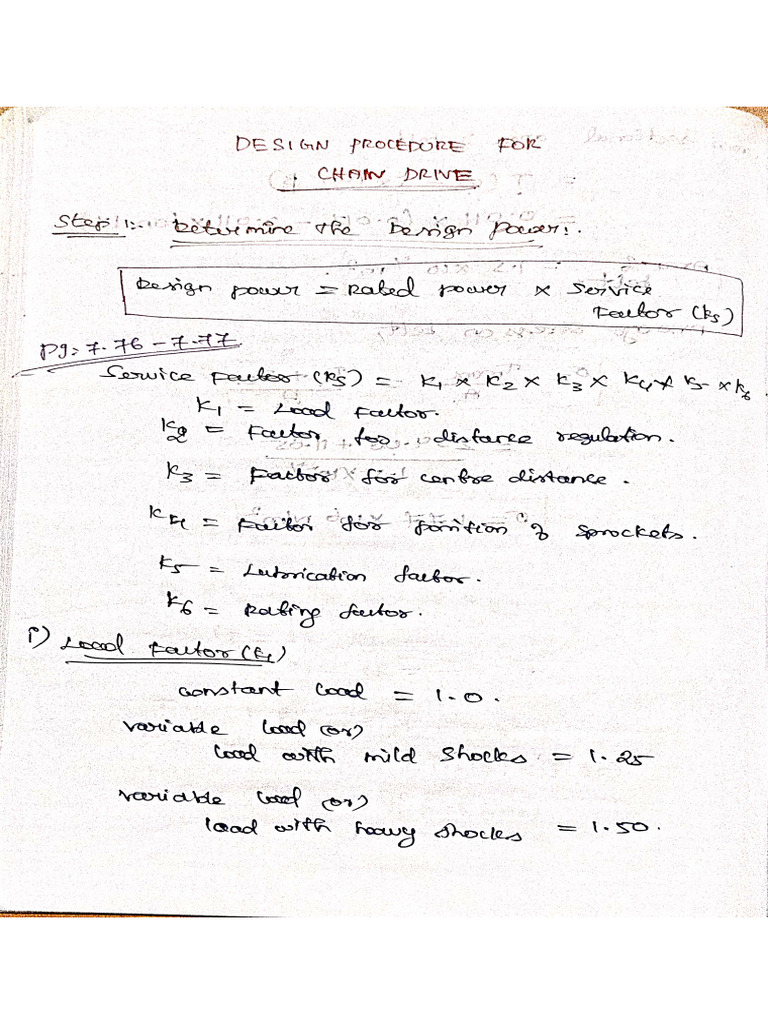 DESIGN PROCEDURE FOR
CHAIN DRIVE
Step 1:- Determine the Design Power:-
Design power = Rated power × Service
Factor (ks)
Pg: 7.76 - 7.77
Service Factor (ks) = k1 × k2 × k3 × k4 × k5 × k6
k1 = Load Factor.
k2 = Factor for distance regulation.
k3 = Factor for centre distance.
k4 = Factor for position of sprockets.
k5 = Lubrication factor.
k6 = Rating factor.
i) Load Factor (k1)
constant load = 1.0.
variable load (or)
load with mild shocks = 1.25
variable load (or)
load with heavy shocks = 1.50.